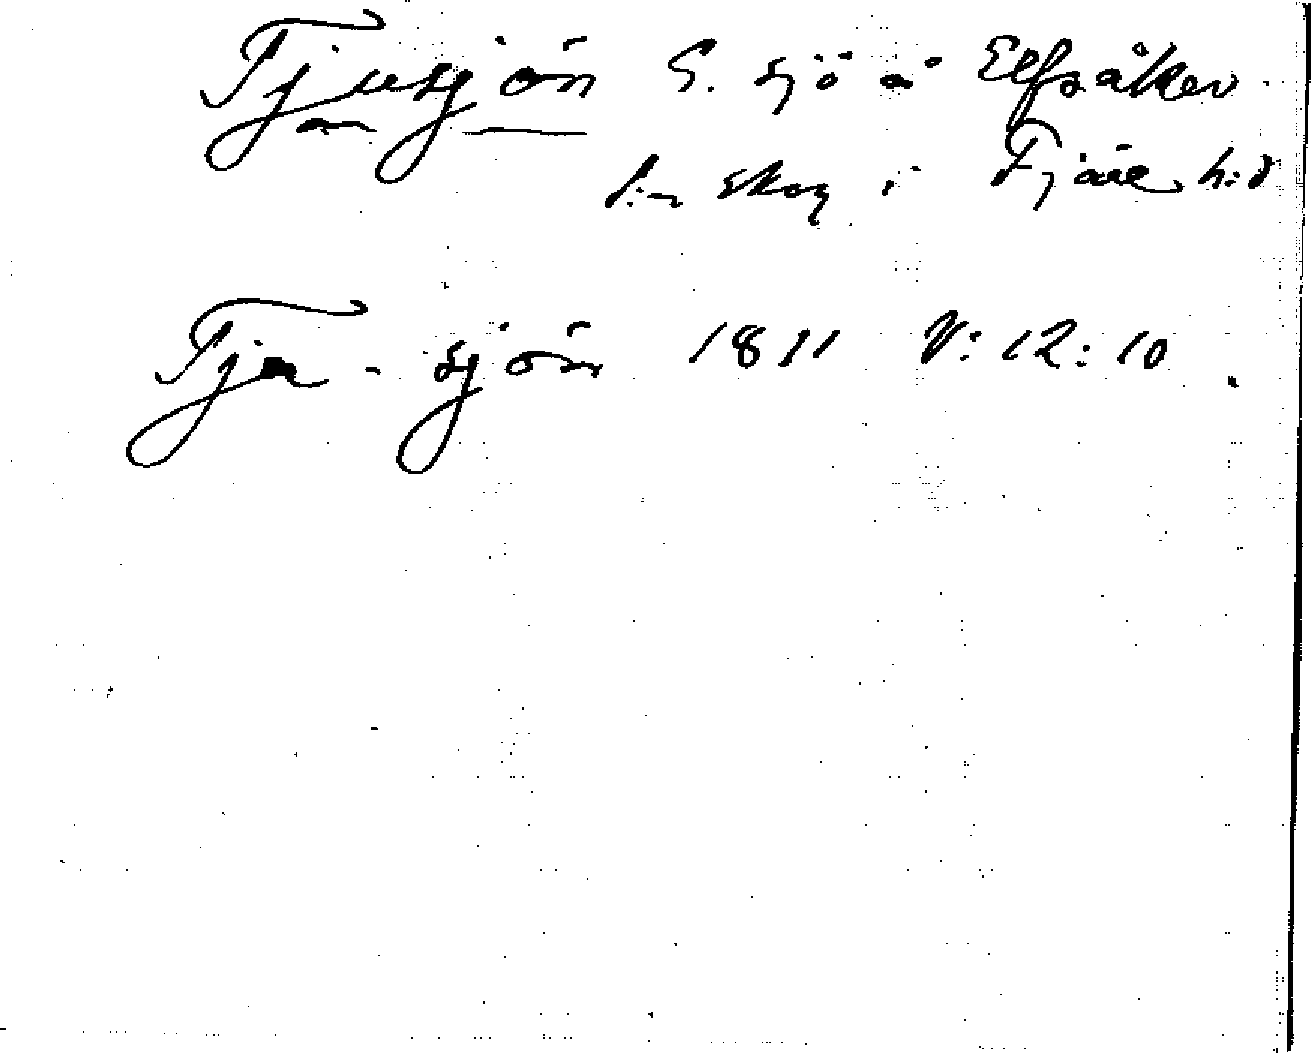 Tjusjön S. sjö å Elfsåker
s:n skog i Fjäre h:d
Tja-sjön 1811 V:12:10